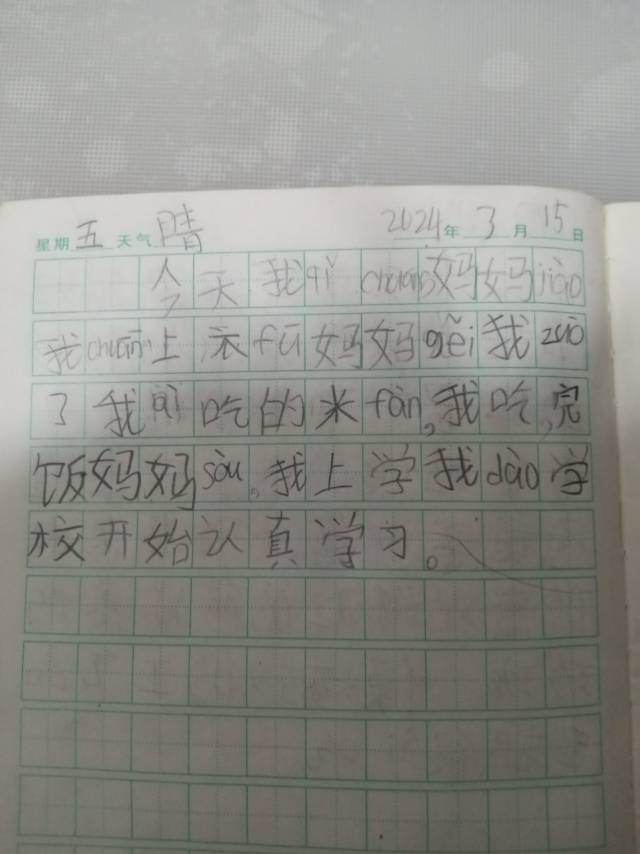 星期五 天气晴 2024年3月15日
今天我qǐ chuáng妈妈jiào
我chuān上衣fú妈妈gěi我zuò
了我ài吃的米fàn,我吃,完
饭妈妈sòu。我上学我dào学
校开始认真学习。